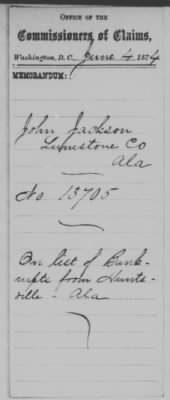 OFFICE OF THE
Commissioners of Claims,
Washington, D.C., June 4 1874
MEMORANDUM:
John Jackson
Limestone Co
Ala
No. 13705
On list of Bank-
rupts from Hunts-
ville - Ala